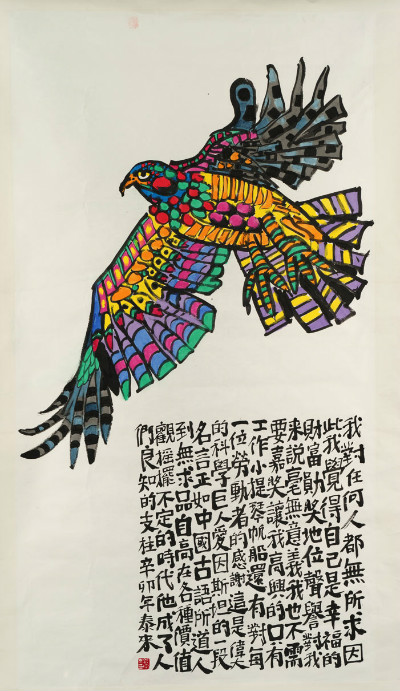 我對任何人都無所求因
此我覺得自己是幸福的
財富勛奬地位聲譽對我
来説毫無意義我也不需
要嘉奬讓我高興的只有
工作小提琴帆船還有對每
一位勞動者的感謝這是偉
的科學巨人愛因斯坦的段
名言正如中國古語所道人
到無求品自高在各種價值
觀摇擺不定的時代他成了人
們良知的支柱辛卯年泰来